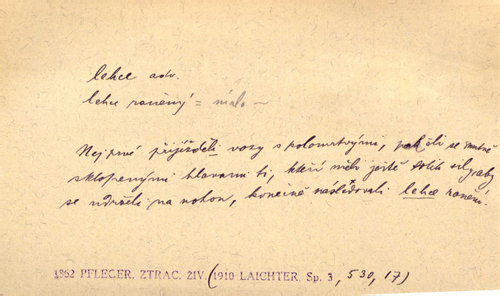 lehce adv.
lehce raněný = málo ~
Nejprvé přijížděli vozy s polomrtvými, pak šli se smutně
sklopenými hlavami ti, kteří měli ještě tolik síly, aby
se udrželi na nohou, konečně následovali lehce ranění.
1862 PFLEGER. ZTRAC. ŽIV. (1910 LAICHTER. Sp. 3, 530, 17)